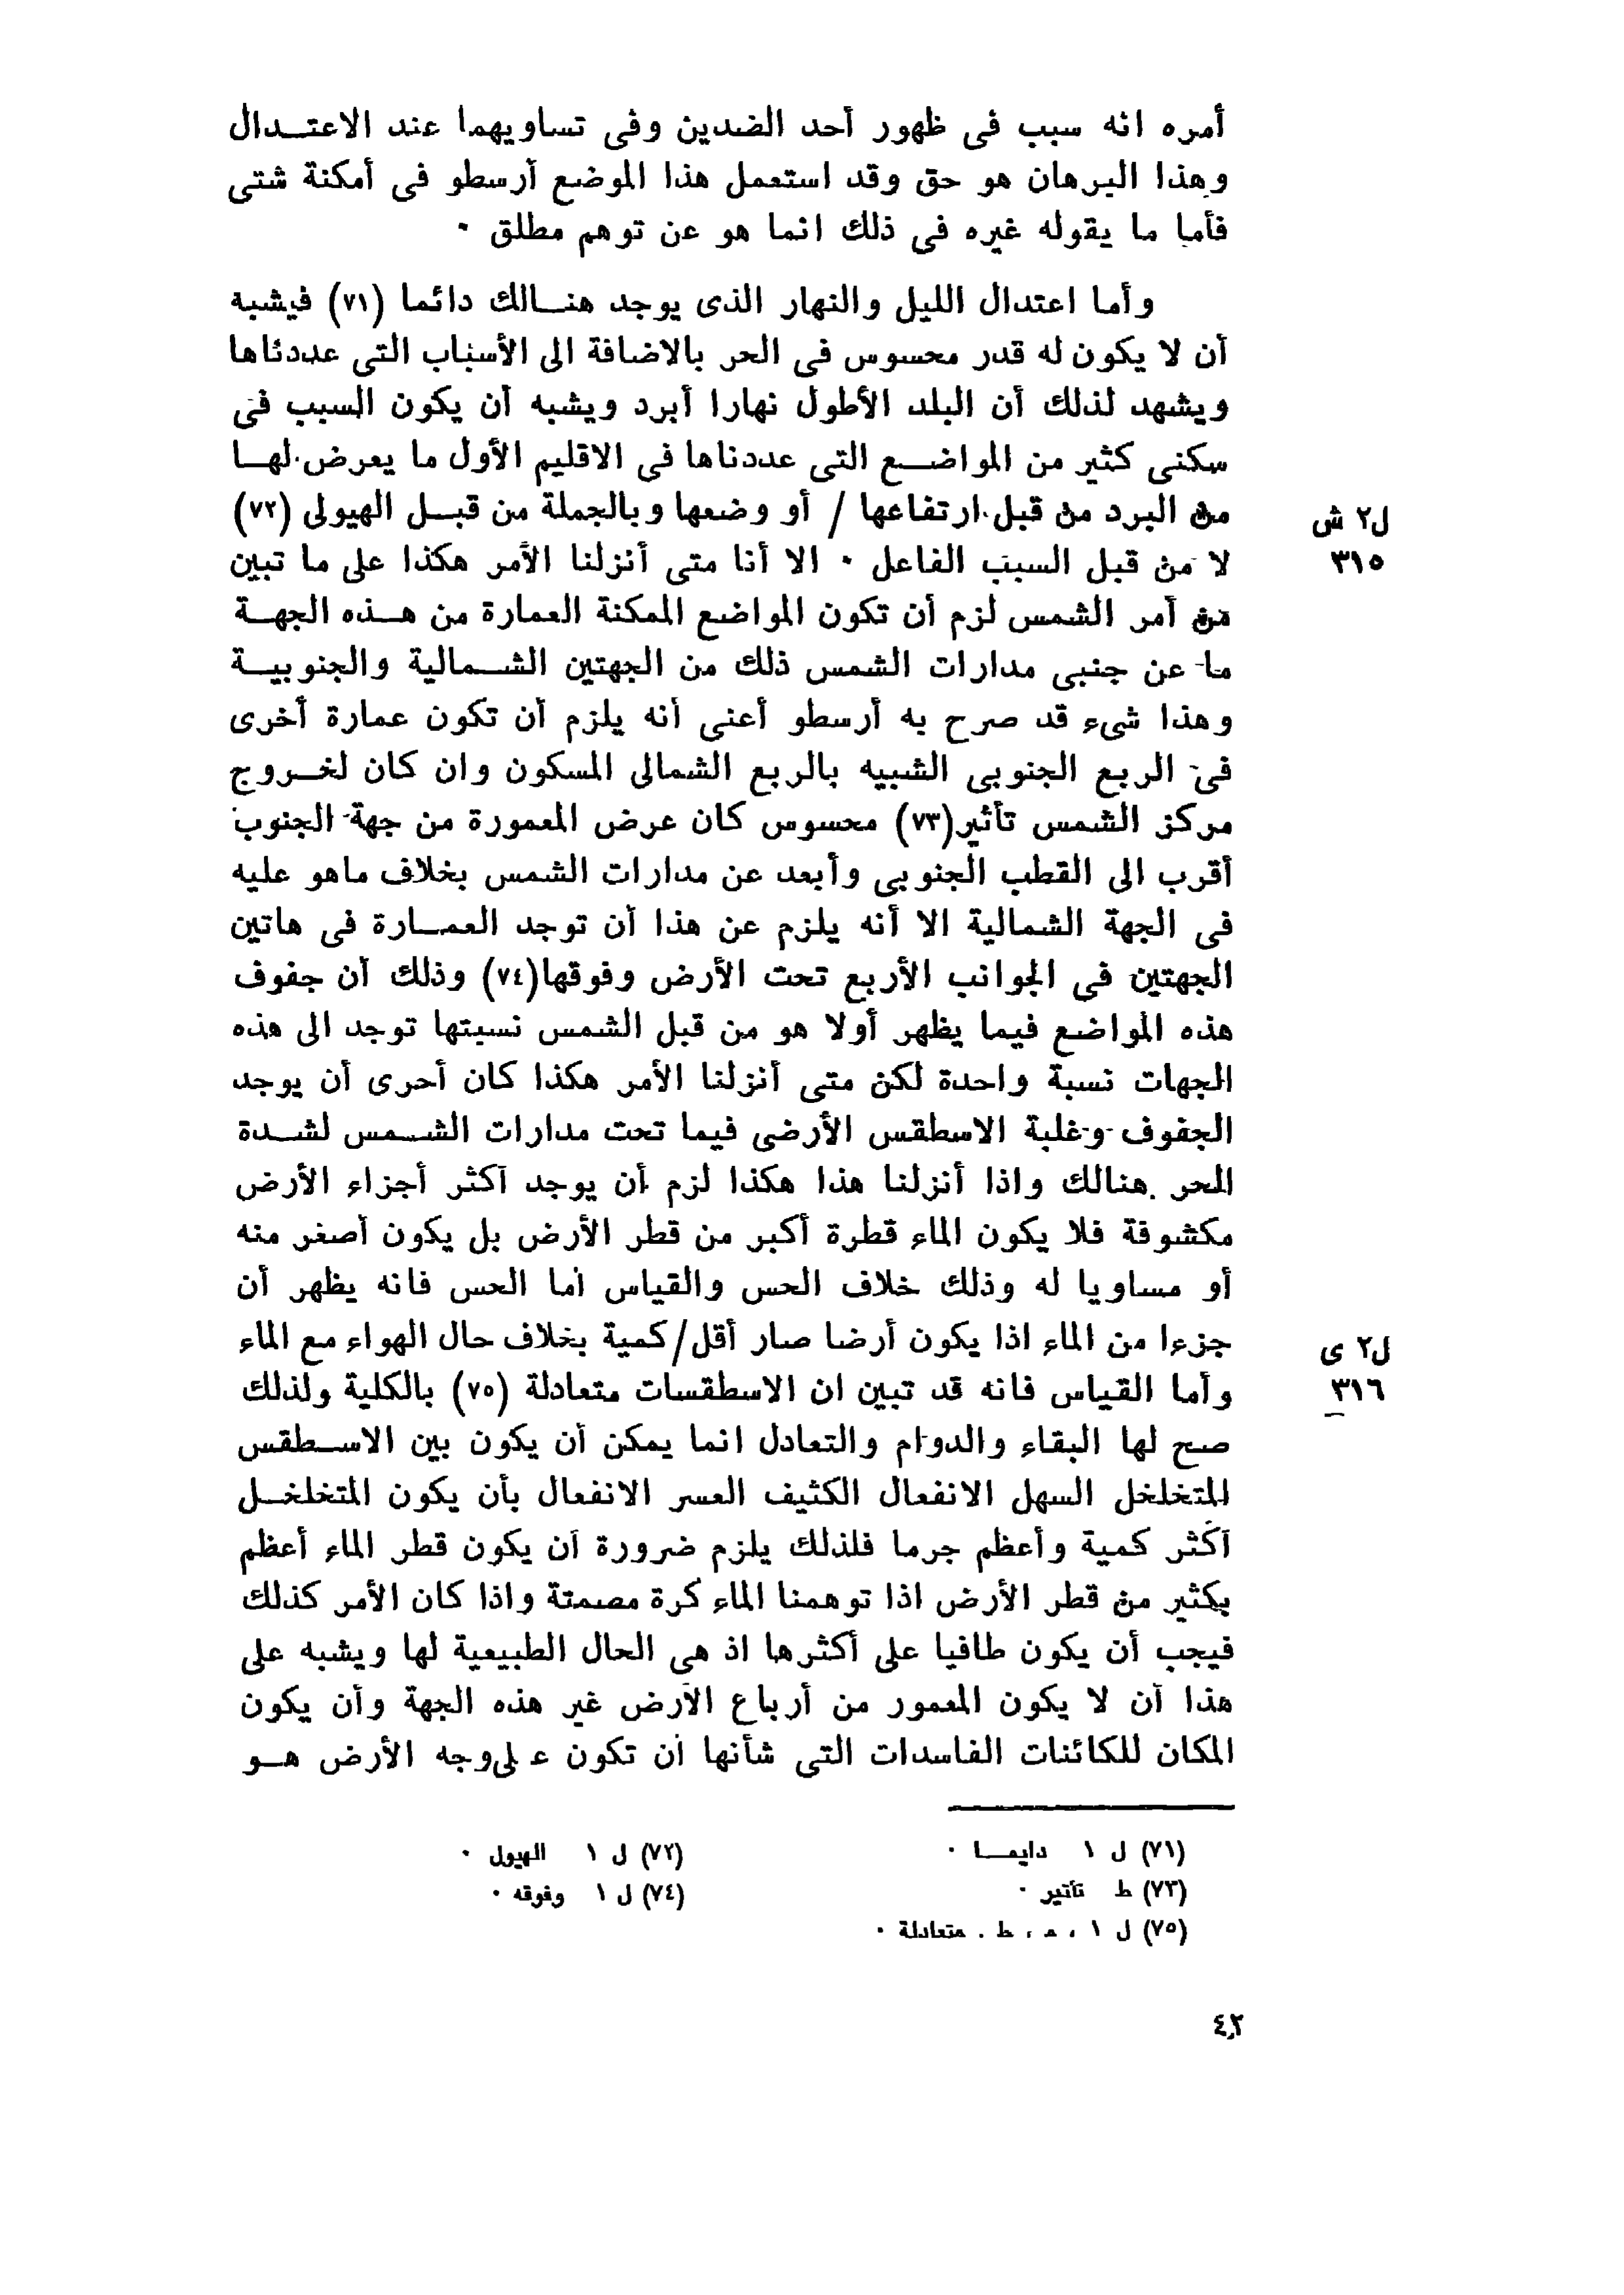 أمره انه سبب فى ظهور أحد الضدين وفى تساويهما عند الاعتــدال
وهذا البرهان هو حق وقد استعمل هذا الموضع أرسطو فى أمكنة شتى
فأما ما يقوله غيره فى ذلك انما هو عن توهم مطلق ٠
وأما اعتدال الليل والنهار الذى يوجد هنــالك دائما (٧١) فيشبة
أن لا يكون له قدر محسوس فى الحر بالاضافة الى الأسباب التى عددناها
ويشهد لذلك أن البلد الأطول نهارا أبرد ويشبه أن يكون السبب فى
سكنى كثير من المواضــع التى عددناها فى الاقليم الأول ما يعرض لهــا
من البرد من قبل ارتفاعها / أو وضعها وبالجملة من قبــل الهيولى (٧٢)
ل٢ ش
٣١٥
لا من قبل السبب الفاعل ٠ الا أنا متى أنزلنا الأمر هكذا على ما تبين
من أمر الشمس لزم أن تكون المواضع الممكنة العمارة من هــذه الجهــة
ما عن جنبى مدارات الشمس ذلك من الجهتين الشــمالية والجنوبيــة
وهذا شىء قد صرح به أرسطو أعنى أنه يلزم أن تكون عمارة أخرى
فى الربع الجنوبى الشبيه بالربع الشمالى المسكون وان كان لخــروج
مركز الشمس تأثير(٧٣) محسوس كان عرض المعمورة من جهة الجنوب
أقرب الى القطب الجنوبى وأبعد عن مدارات الشمس بخلاف ماهو عليه
فى الجهة الشمالية الا أنه يلزم عن هذا أن توجد العمــارة فى هاتين
الجهتين فى الجوانب الأربع تحت الأرض وفوقها(٧٤) وذلك أن جفوف
هذه المواضع فيما يظهر أولا هو من قبل الشمس نسبتها توجد الى هذه
الجهات نسبة واحدة لكن متى أنزلنا الأمر هكذا كان أحرى أن يوجد
الجفوف وغلبة الاسطقس الأرضى فيما تحت مدارات الشــمس لشــدة
الحر هنالك واذا أنزلنا هذا هكذا لزم أن يوجد أكثر أجزاء الأرض
مكشوفة فلا يكون الماء قطرة أكبر من قطر الأرض بل يكون أصغر منه
أو مساويا له وذلك خلاف الحس والقياس أما الحس فانه يظهر أن
جزءا من الماء اذا يكون أرضا صار أقل/كمية بخلاف حال الهواء مع الماء
ل٢ ى
٣١٦
وأما القياس فانه قد تبين ان الاسطقسات متعادلة (٧٥) بالكلية ولذلك
صح لها البقاء والدوام والتعادل انما يمكن أن يكون بين الاســطقس
المتخلخل السهل الانفعال الكثيف العسر الانفعال بأن يكون المتخلخــل
أكثر كمية وأعظم جرما فلذلك يلزم ضرورة أن يكون قطر الماء أعظم
بكثير من قطر الأرض اذا توهمنا الماء كرة مصمتة واذا كان الأمر كذلك
فيجب أن يكون طافيا على أكثرها اذ هى الحال الطبيعية لها ويشبه على
هذا أن لا يكون المعمور من أرباع الأرض غير هذه الجهة وأن يكون
المكان للكائنات الفاسدات التى شأنها أن تكون على وجه الأرض هــو
(٧١) ل ١ دايمــا ٠
(٧٢) ل ١ الهيول ٠
(٧٣) ط تأتير ٠
(٧٤) ل ١ وفوقه ٠
(٧٥) ل ١ ، م ، ط . متعادلة ٠
٤٢